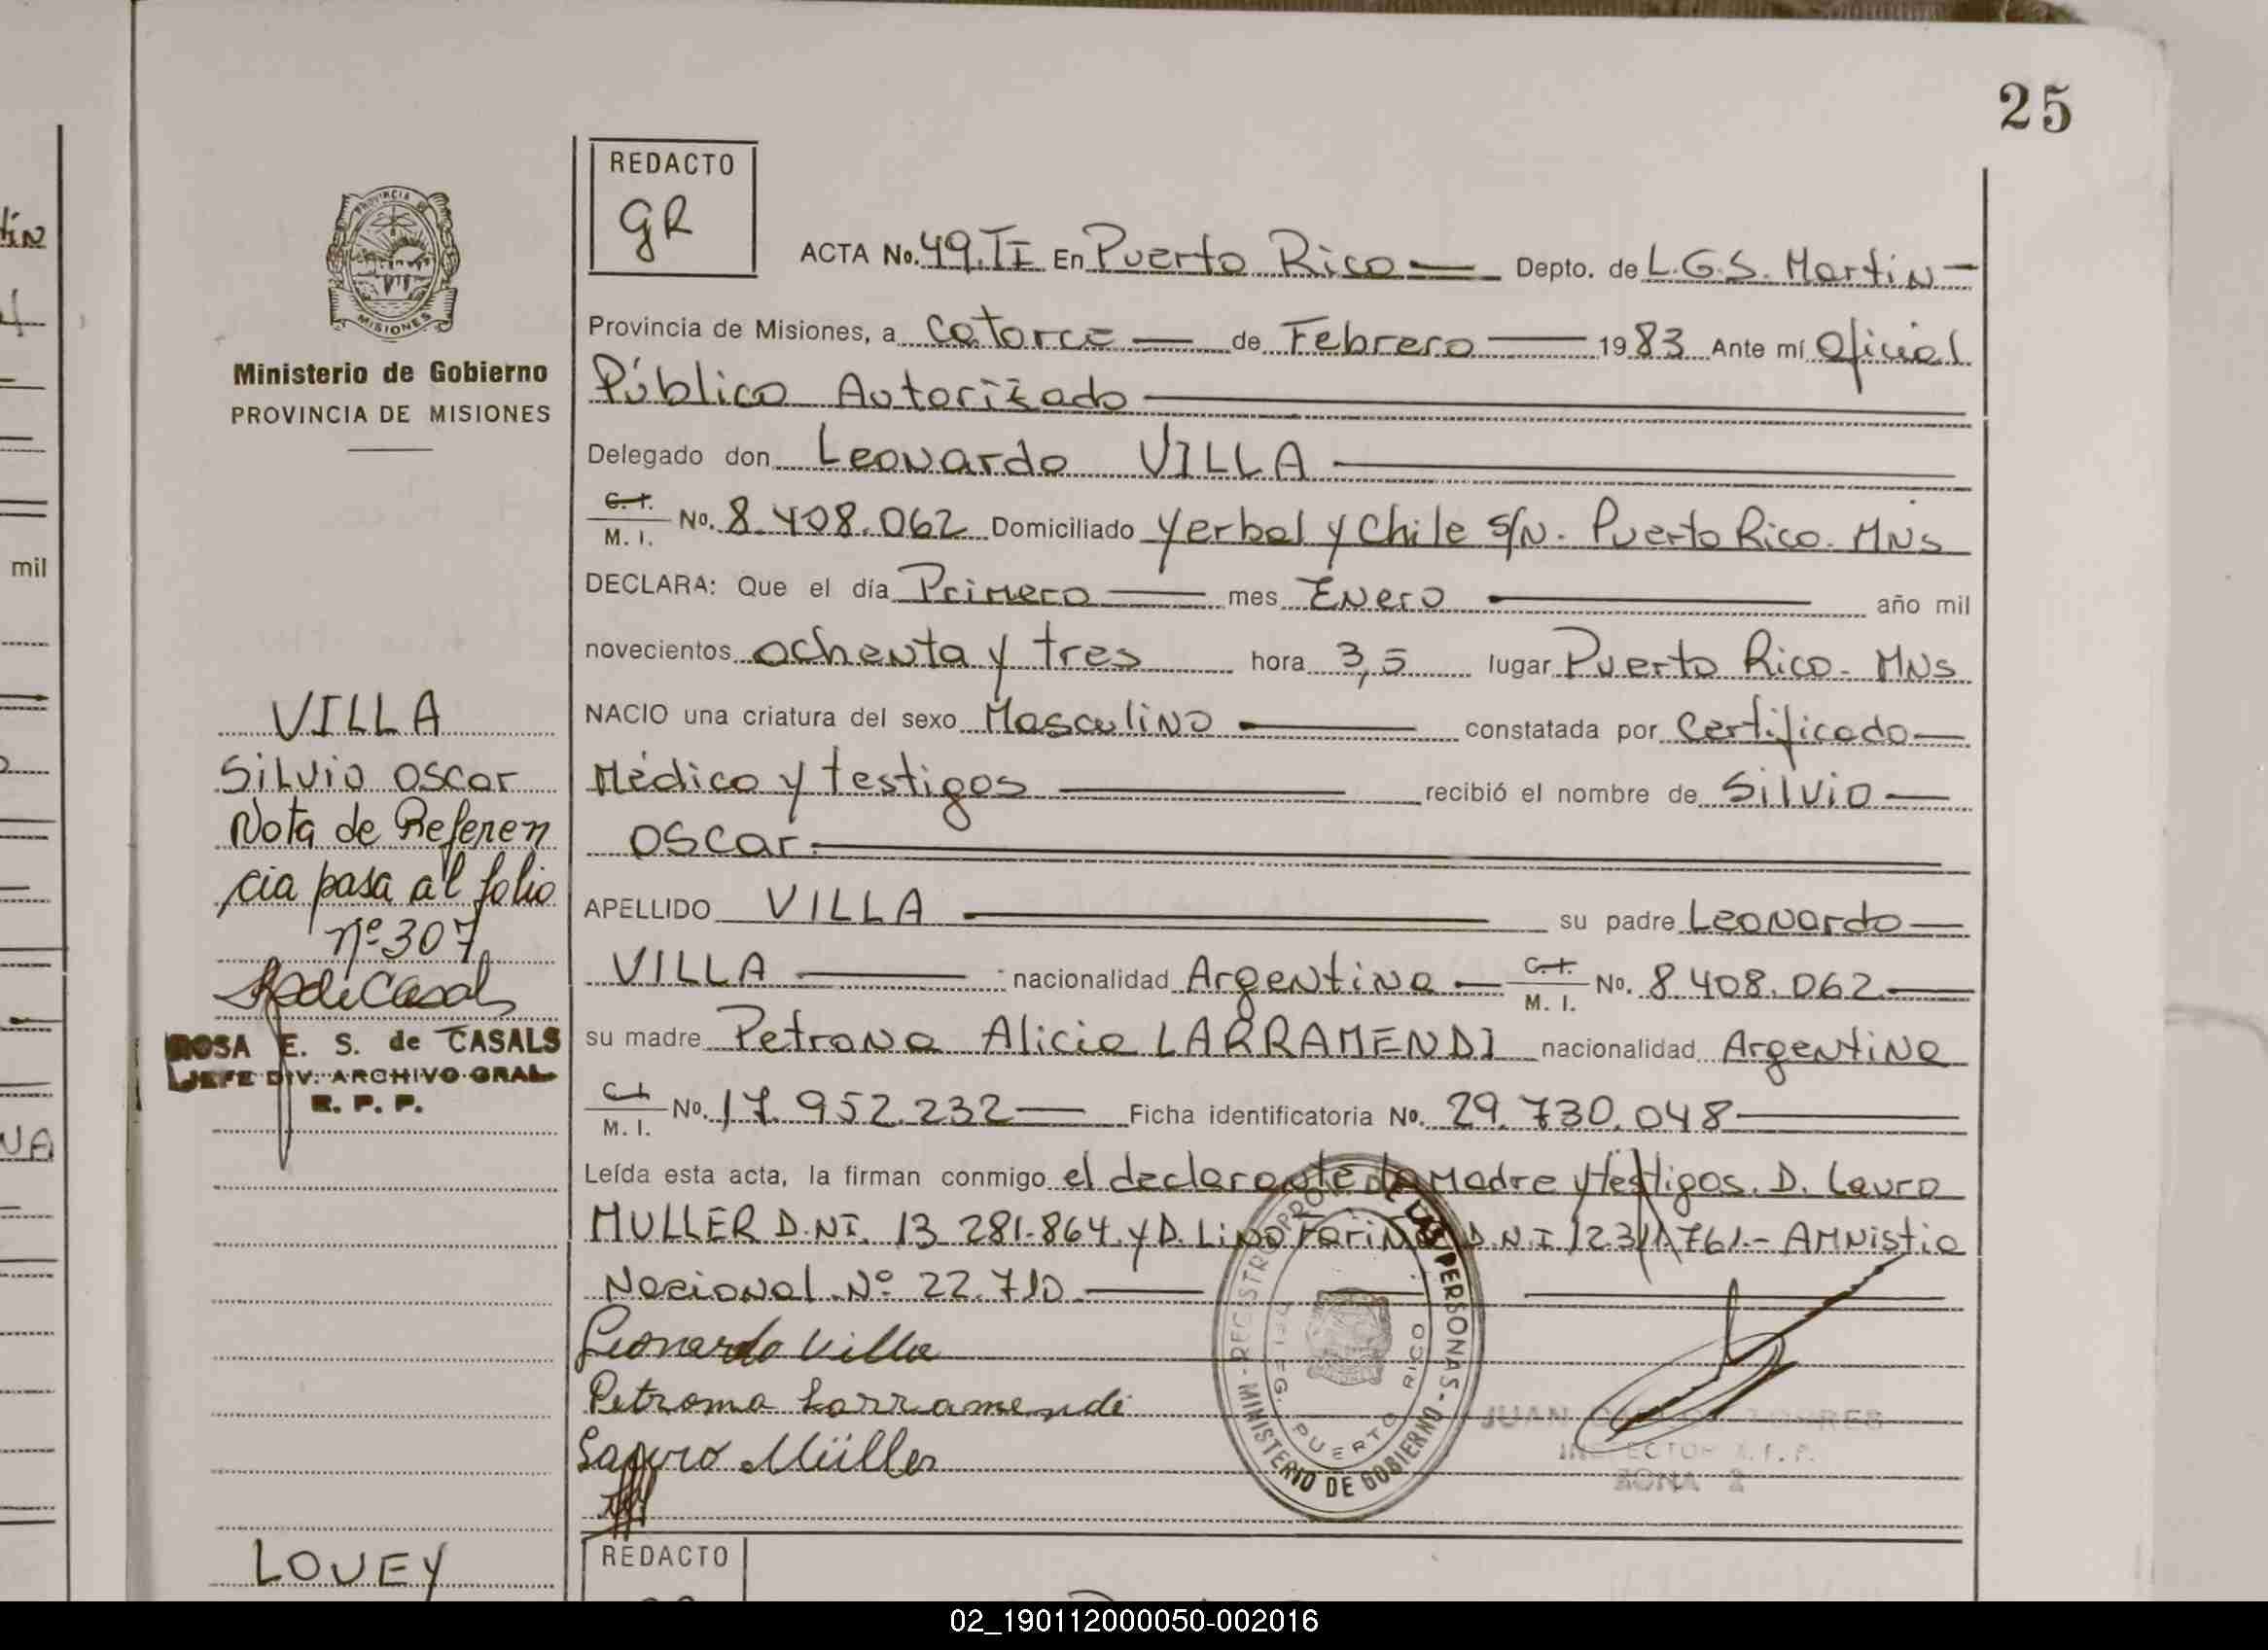 25
REDACTO
GR
PROVINCIA DE
MISIONES
Ministerio de Gobierno
PROVINCIA DE MISIONES
ACTA No. 49.TI En Puerto Rico — Depto. de L.G.S. Martin —
Provincia de Misiones, a catorce — de Febrero — 1983 Ante mí Oficial
Público Autorizado
Delegado don Leonardo VILLA
C.I. M.I. No. 8.408.062 Domiciliado Yerbal y Chile s/N. Puerto Rico. MNs
DECLARA: Que el día Primero — mes Enero — año mil
novecientos ochenta y tres hora 3,5 lugar Puerto Rico - MNs
NACIO una criatura del sexo Masculino — constatada por Certificado —
Médico y testigos — recibió el nombre de Silvio —
Oscar.
APELLIDO VILLA — su padre Leonardo —
VILLA — nacionalidad Argentina — C.I. M.I. No. 8.408.062 —
su madre Petrona Alicia LARRAMENDI nacionalidad Argentina
C.I. M.I. No. 17.952.232 — Ficha identificatoria No. 29.730.048 —
Leída esta acta, la firman conmigo el declarante la Madre y testigos. D. Lauro
MULLER D.NI. 13 281.864 y D. Lino D.N.I - AMNistia
Nacional Nº 22.710
Leonardo Villa
Petrona Larramendi
Lauro Müller
REGISTRO PROV. DE LAS PERSONAS - MINISTERIO DE GOBIERNO
PUERTO RICO
JUAN TORRES
INSPECTOR
ZONA 2
VILLA
Silvio Oscar
Nota de Referen
cia pasa al folio
nº 307
ROSA E. S. de CASALS
JEFE DIV. ARCHIVO GRAL
R. P. P.
LOVEY
REDACTO
tin
mil
NA
02_190112000050-002016